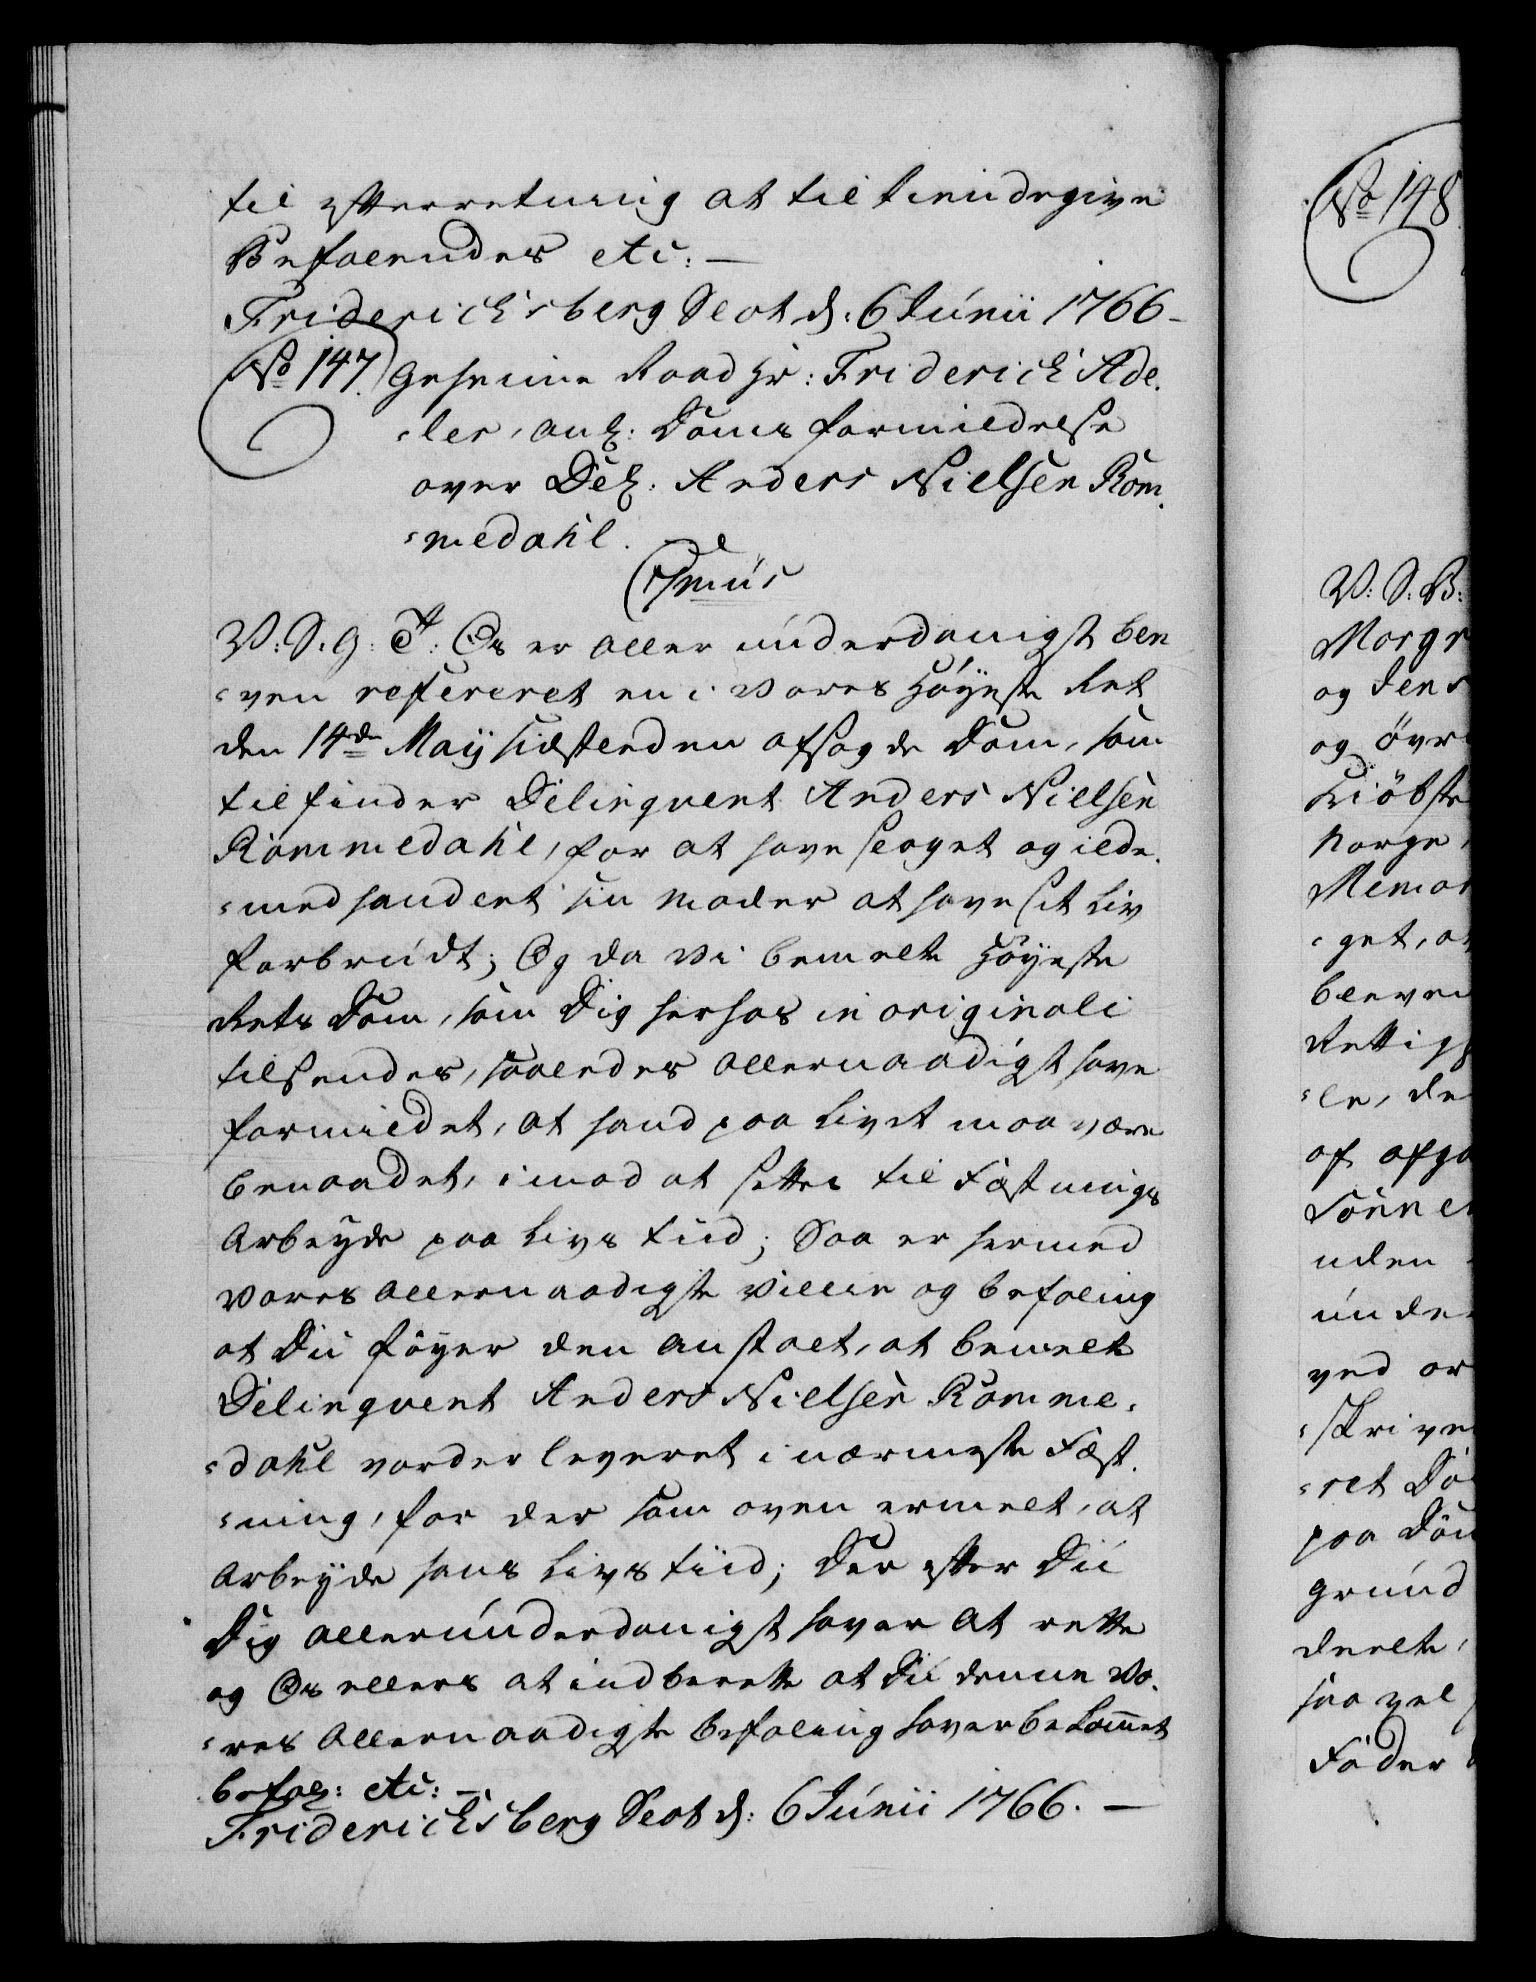 til efterretning at tilkiendegive
Befalendes etc: —
Friderichsberg Slot d: 6 Junii 1766 –
No 147. Geheime Raad Hr: Friderich Ade-
-ler, anl: Doms formildelse
over Del: Anders Nielsen Rom-
-medahl.
V: S. G: T: Os er allerunderdanigst ble-
-ven refereret en i Vores Høyeste Ret
den 14de Maij sidstleden afsagde Dom, som
tilfinder Delinqvent Anders Nielsen
Rommedahl, for at have slaget og ilde-
-medhandlet sin Moder at have sit Liv
forbrudt; Og da Vi bemelte Höyeste
Rets Dom, som Dig herhos in originali
tilsendes, saaledes allernaadigst have
formildet, at hand paa Livet maa være
benaadet, imod at settes til Fæstnings
Arbeyde paa Livs Tiid; Saa er hermed
Vores allernaadigste Villie og befaling
at Du föyer den anstalt, at bemelte
Delinqvent Anders Nielsen Romme-
-dahl vorder leveret i nærmeste Fæst-
-ning, for der som oven ermelt, at
Arbeyde hans Livs Tiid; Der efter Du
Dig allerunderdanigst haver at rette
og Os ellers at indberette at Du denne Vo-
-res Allernaadigste befaling haver bekommet
befal: etc: —
Friderichsberg Slot d: 6 Junii 1766. —
No 148
V: S: B:
Morgr
og dens
og övri
Kiöbste
Norge,
Memor
-get, at
bleven
Rettigh
-le, de
af afga
Sönne
uden
unde
ved or
-skrive
-ret Dö
paa Döm
grund
deelte,
saa vel
Föder